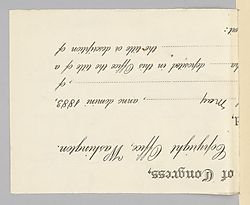 of Congress,
Copyright Office, Washington.
May, anno domini 1883,
of,
deposited in this Office the title of a
the title or description of